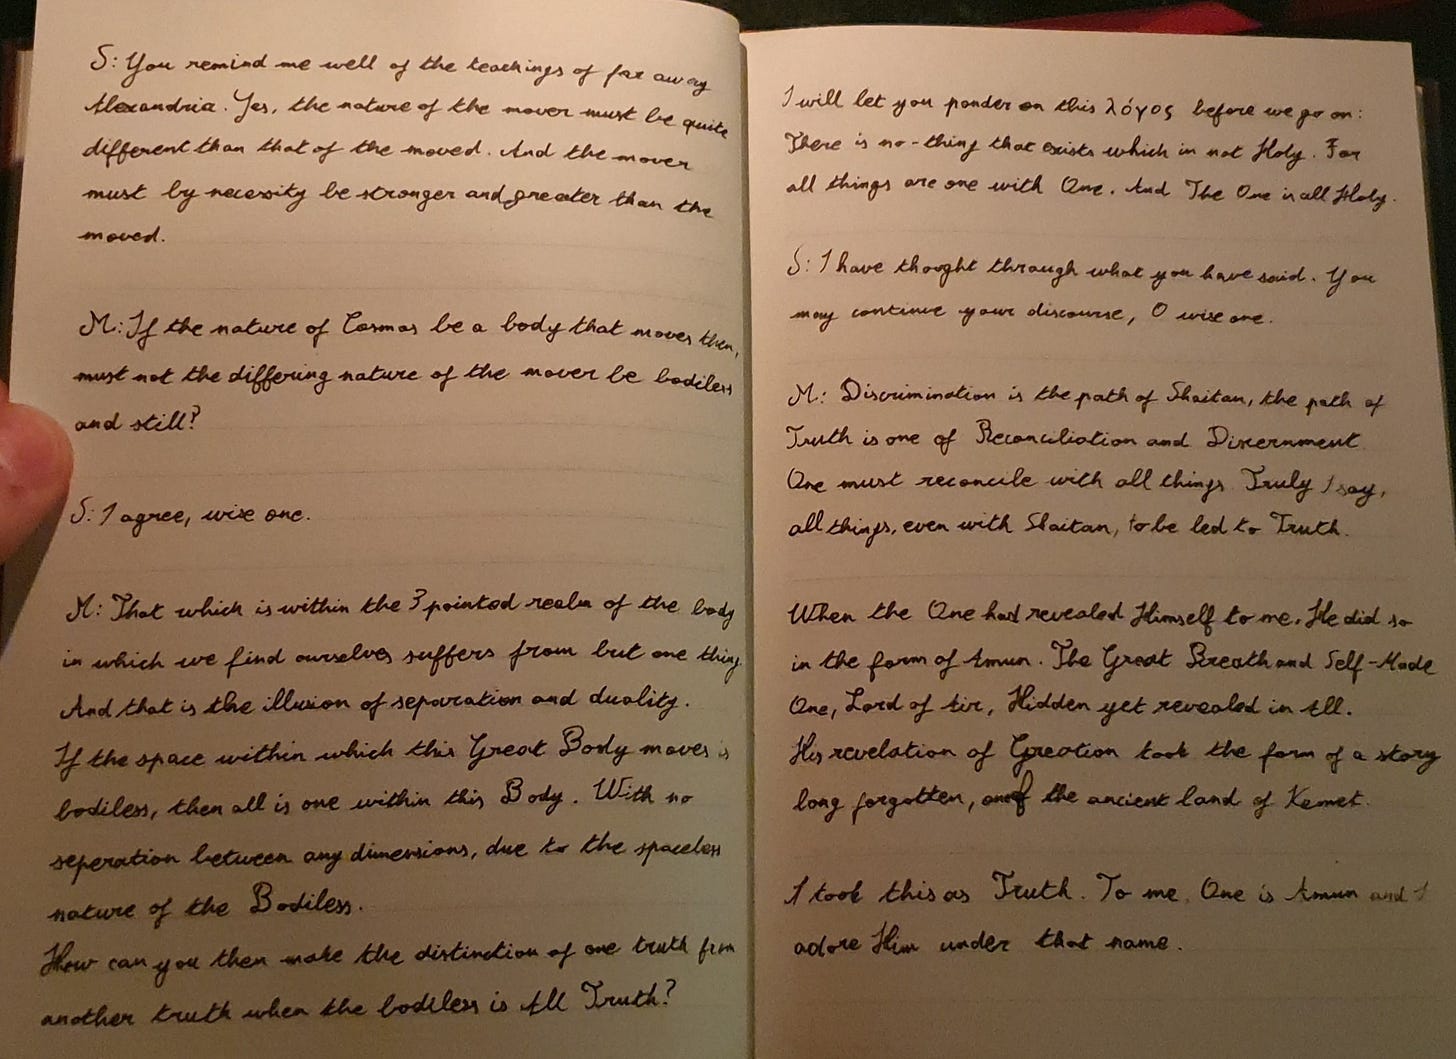 S: You remind me well of the teachings of far away
Alexandria. Yes, the nature of the mover must be quite
different than that of the moved. And the mover
must by necessity be stronger and greater than the
moved.
M: If the nature of Cosmos be a body that moves then,
must not the differing nature of the mover be bodiless
and still?
S: I agree, wise one.
M: That which is within the 3 pointed realm of the body
in which we find ourselves suffers from but one thing
And that is the illusion of separation and duality.
If the space within which this Great Body moves is
bodiless, then all is one within this Body. With no
seperation between any dimensions, due to the spaceless
nature of the Bodiless.
How can you then make the distinction of one truth from
another truth when the bodiless is All Truth?
I will let you ponder on this λόγος before we go on:
There is no-thing that exists which in not Holy. For
all things are one with One. And The One is all Holy.
S: I have thought through what you have said. You
may continue your discourse, O wise one.
M: Discrimination is the path of Shaitan, the path of
Truth is one of Reconciliation and Discernment.
One must reconcile with all things. Truly I say,
all things, even with Shaitan, to be led to Truth.
When the One had revealed Himself to me. He did so
in the form of Amun. The Great Breath and Self-Made
One, Lord of Air, Hidden yet revealed in All.
His revelation of Creation took the form of a story
long forgotten, of the ancient land of Kemet.
I took this as Truth. To me, One is Amun and I
adore Him under that name.